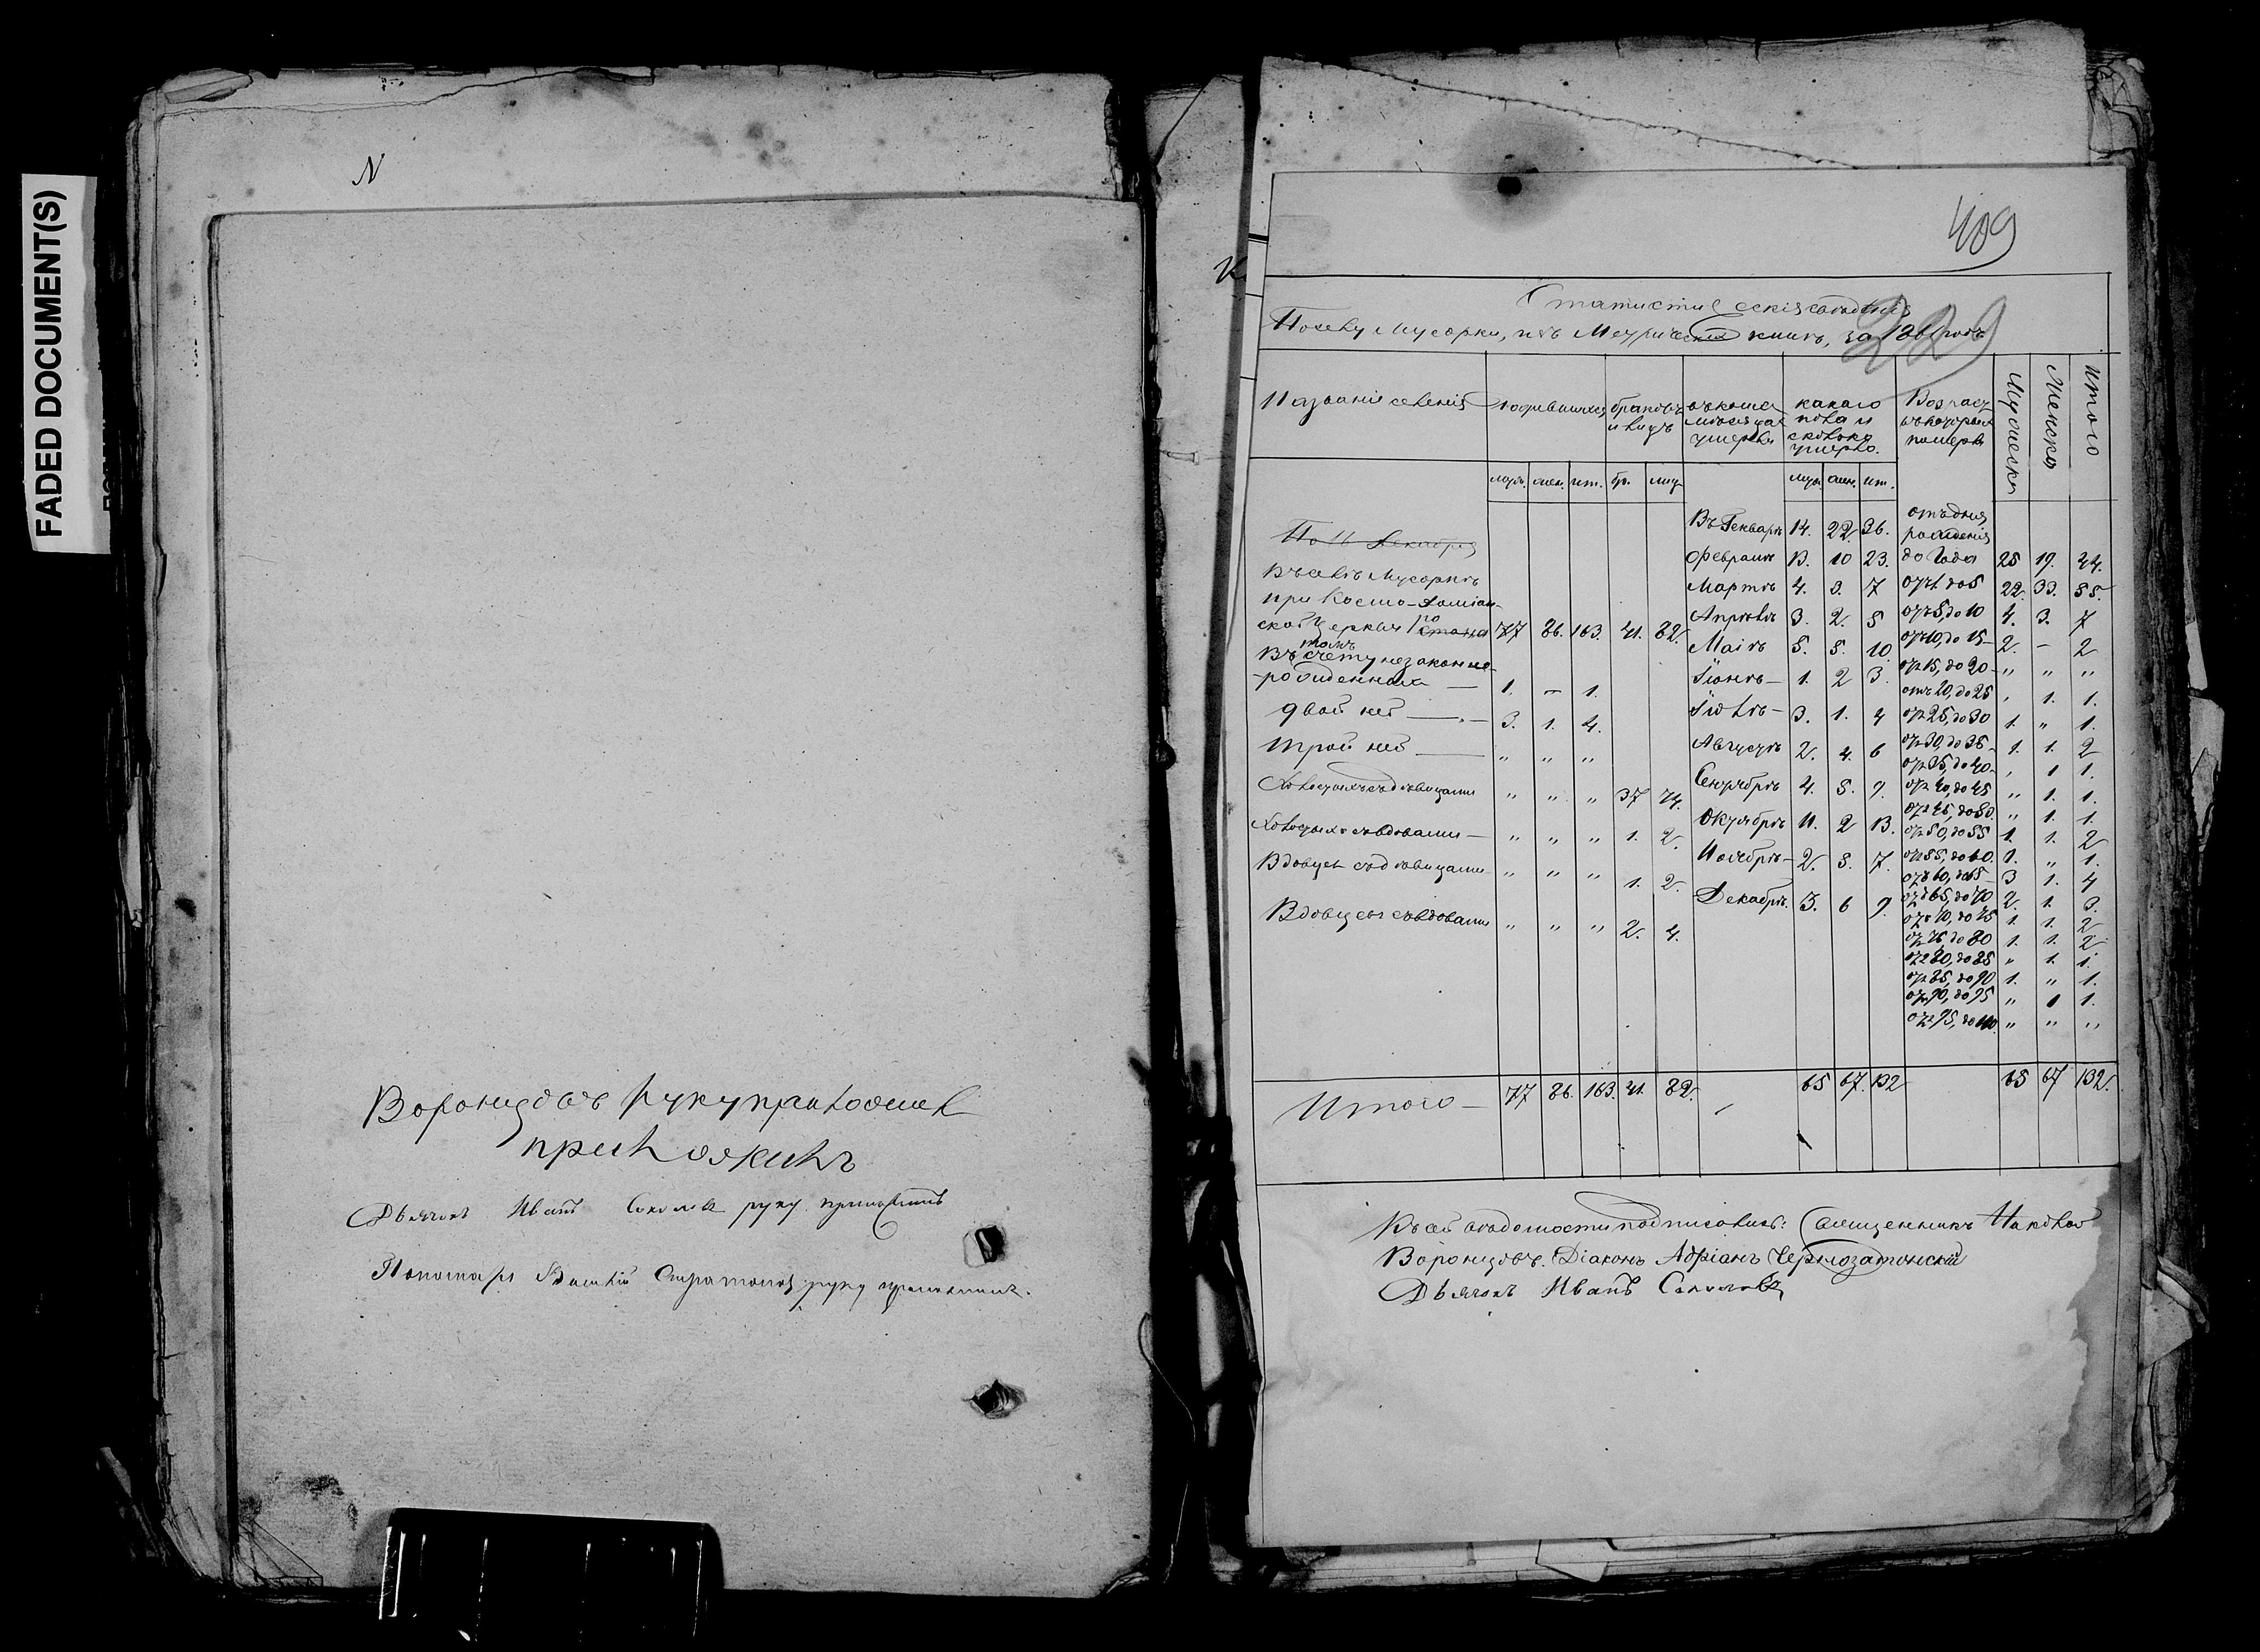 FADED DOCUMENT(S)
N
Воронцовъ руку приложилъ
Дьячокъ Иванъ Соколовъ руку приложилъ
Пономарь Василій руку приложилъ.
409
229
Статистическія свѣденія
По селу Мусорки, изъ Метрической книги, за годъ
Названіе селенія родившихся браковъ и лицъ въ какихъ мѣсяцахъ умерли какого пола и сколько умерло. Возрастъ въ которыхъ померли Мужеска Женска Итого
муж. жен. ит. бр. лиц муж. жен. ит.
Въ Генварѣ 14. 22. 36. отъ дня рожденія
Февралѣ 13. 10 23. до 1 года 25 19. 44.
Въ селѣ Мусоркѣ Мартѣ 4. 3. 7 отъ 1 до 5 22. 33. 55.
при Космо-Даміан-
ской Церкви 77 86. 163. 41. 82. Апрѣлѣ 3. 2. 5 отъ 5, до 10 4. 3. 7
Въ томъ счету незаконно- Маіѣ 5. 5. 10 отъ 10, до 15 2. – 2
рожденныхъ — 1. — 1. Іюнѣ – 1. 2 3. отъ 15, до 20 – " " "
отъ 20, до 25 , 1. 1.
двойней — 3. 1. 4. Іюлѣ – 3. 1. 4 отъ 25, до 30 1. " 1.
тройней — " " " Августѣ 2. 4. 6 отъ 30, до 35 1. 1. 2
отъ 35, до 40 , 1 1.
Холостыхъ съ дѣвицами " " " 37 74. Сентябрѣ 4. 5. 9. отъ 40, до 45 " 1. 1.
отъ 45, до 50. " 1. 1.
Холостыхъ со вдовами — " " " 1. 2. Октябрѣ 11. 2 13. отъ 50, до 55 1. 1. 2
Вдовцы съ дѣвицами " " " 1. 2. Ноябрѣ – 2. 5. 7. отъ 55, до 60. 1. " 1.
отъ 60, до 65 3 1. 4
Вдовцы со вдовами " " " 2. 4. Декабрѣ. 3. 6 9. отъ 65, до 70 2. 1. 3.
отъ 70, до 75 1. 1. 2
отъ 75, до 80 1. 1. 2
отъ 80, до 85 " 1. 1.
отъ 85, до 90 1. " 1.
отъ 90, до 95 " 1 1.
отъ 95, до 100. " " "
Итого — 77 86. 163. 41. 82. 65 67. 132 65 67 132.
Къ сей вѣдомости подписались: Священникъ
Воронцовъ. Діаконъ Адріанъ Чернозатонскій
Дьячокъ Иванъ Соколовъ